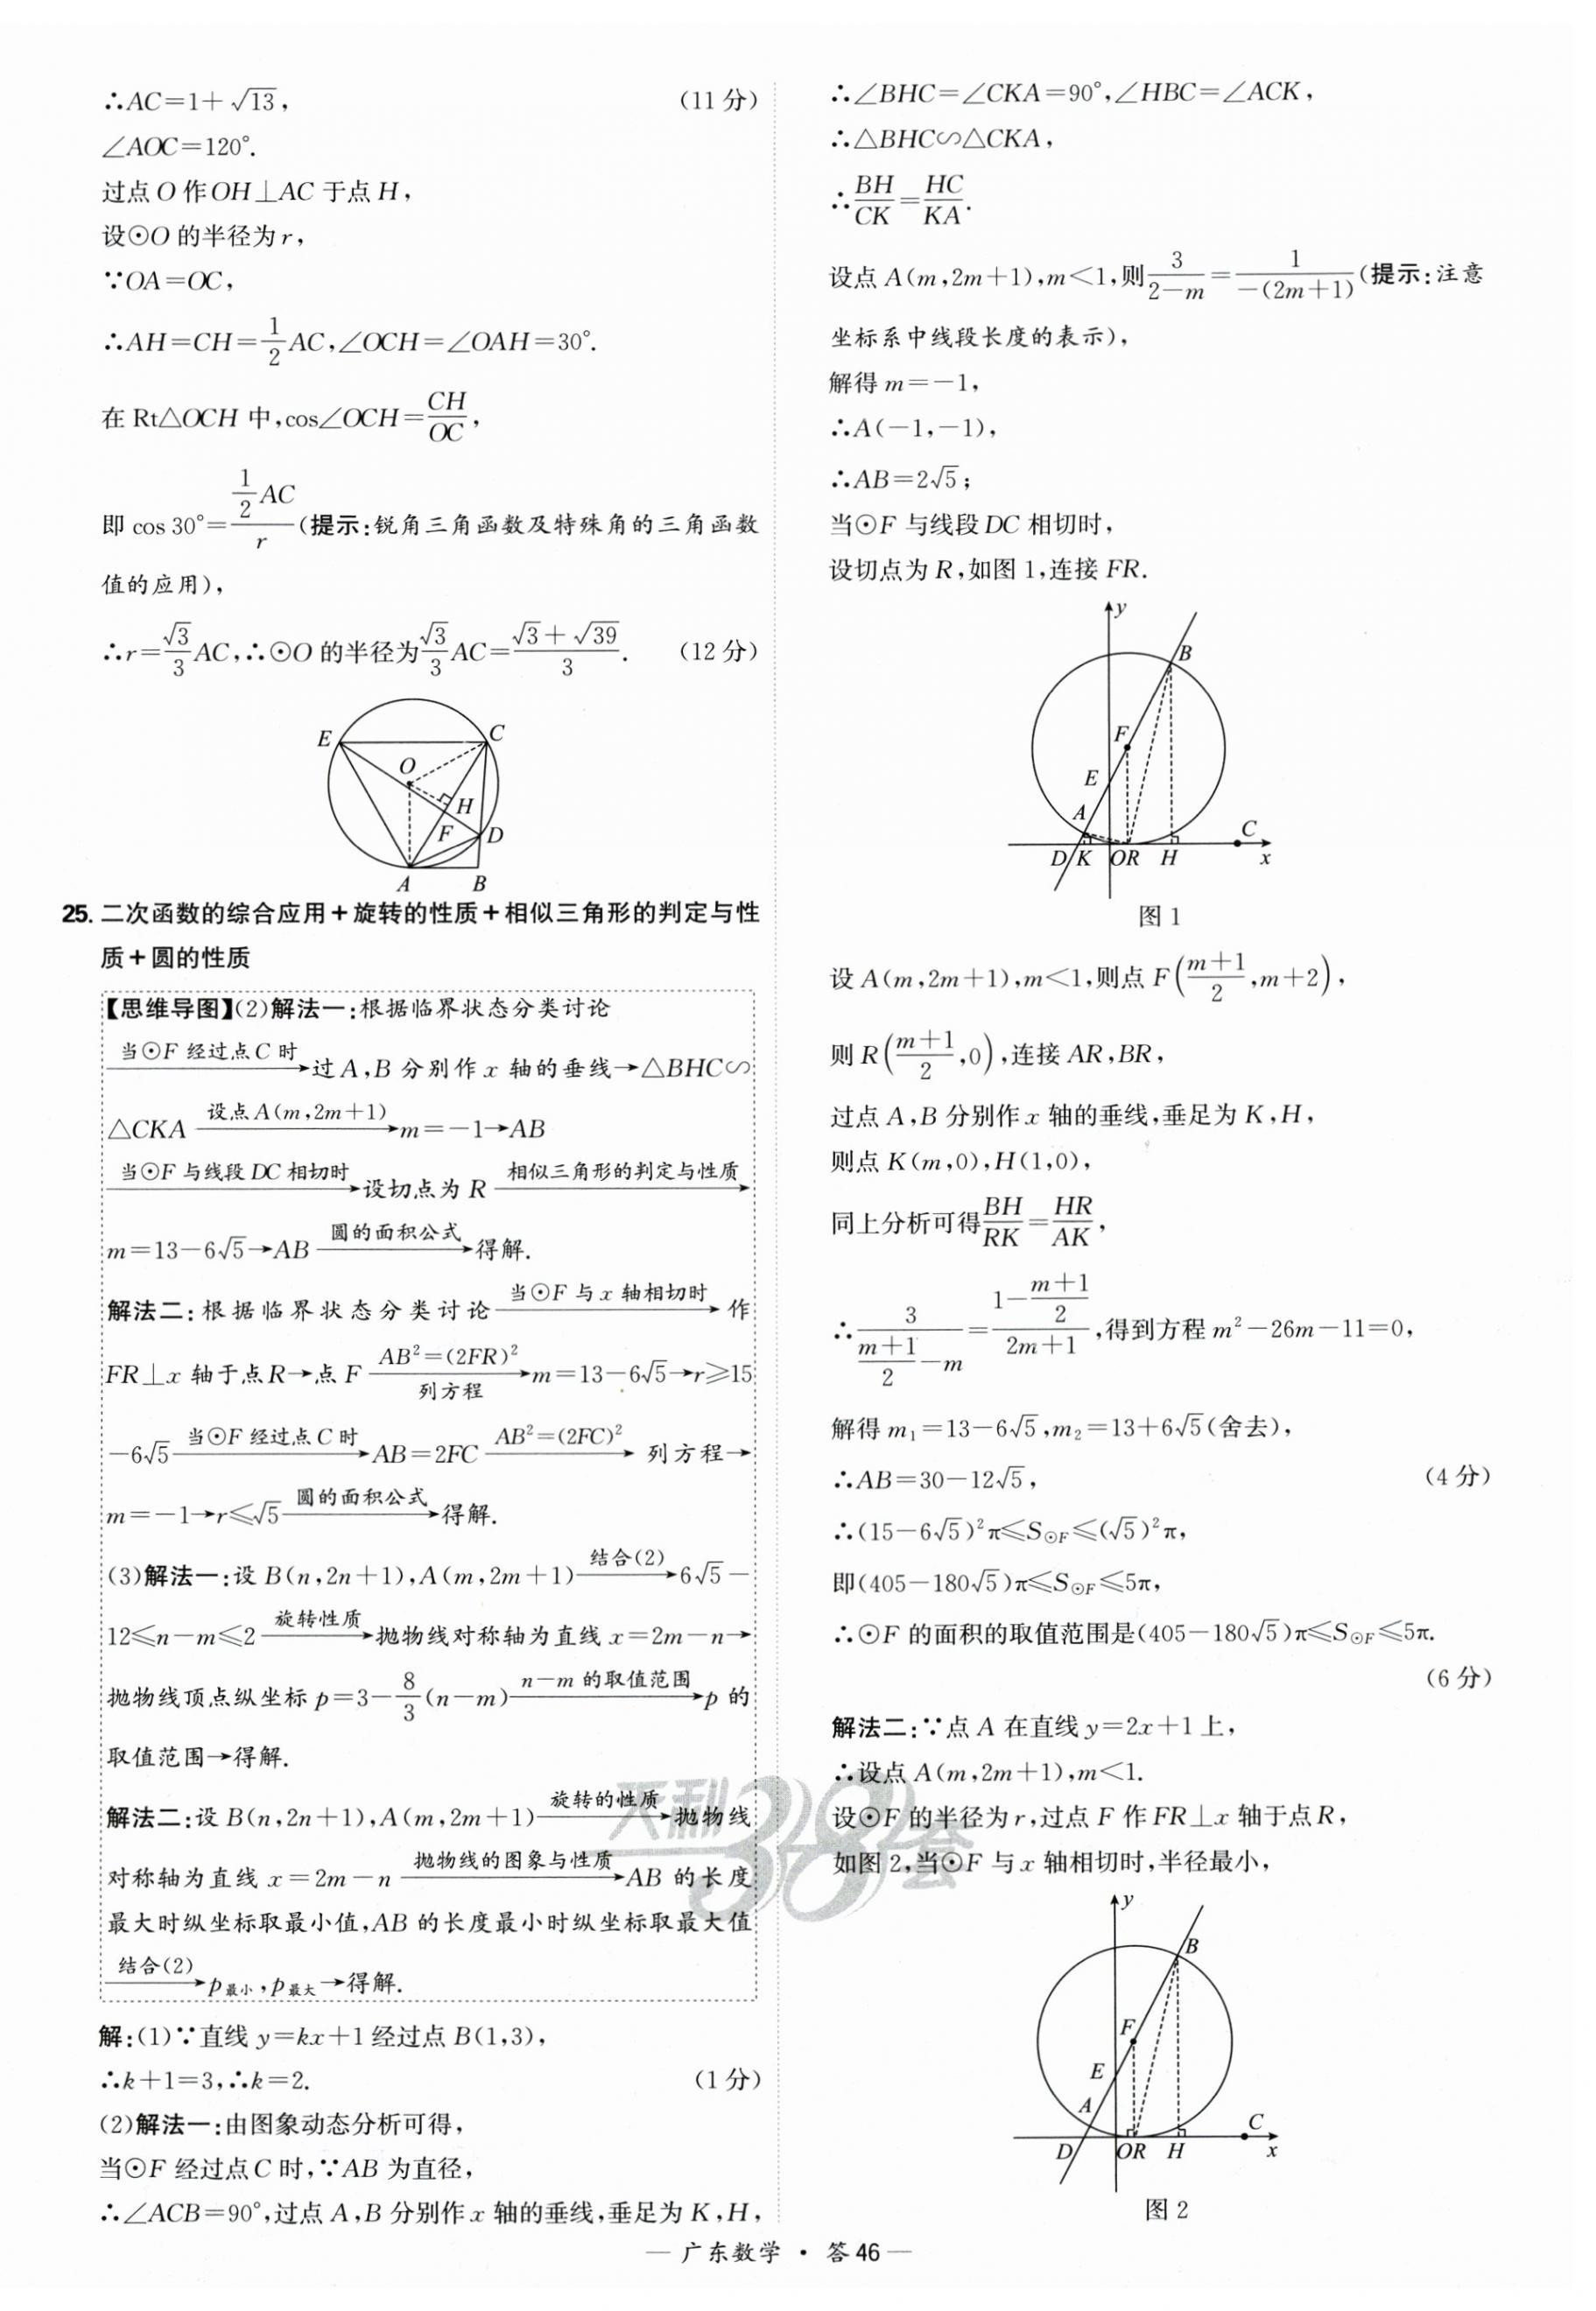 ∴AC=1+√13,	(11 分)
∠AOC=120°.
过点 O 作 OH⊥AC 于点 H,
设⊙O 的半径为 r,
∵OA=OC,
∴AH=CH=1/2 AC,∠OCH=∠OAH=30°.
在 Rt△OCH 中,cos∠OCH=CH/OC,
即 cos 30°=(1/2 AC)/r(提示:锐角三角函数及特殊角的三角函数
值的应用),
∴r=√3/3 AC,∴⊙O 的半径为√3/3 AC=(√3+√39)/3.	(12 分)
E C O H F D A B
25. 二次函数的综合应用+旋转的性质+相似三角形的判定与性
质+圆的性质
【思维导图】(2)解法一:根据临界状态分类讨论
当⊙F 经过点 C 时→过 A,B 分别作 x 轴的垂线→△BHC∽
△CKA 设点 A(m,2m+1)→m=-1→AB
当⊙F 与线段 DC 相切时→设切点为 R 相似三角形的判定与性质→
m=13-6√5→AB 圆的面积公式→得解.
解法二:根据临界状态分类讨论 当⊙F 与 x 轴相切时→作
FR⊥x 轴于点 R→点 F AB²=(2FR)² 列方程→m=13-6√5→r≥15
-6√5 当⊙F 经过点 C 时→AB=2FC AB²=(2FC)²→列方程→
m=-1→r≤√5 圆的面积公式→得解.
(3)解法一:设 B(n,2n+1),A(m,2m+1) 结合(2)→6√5-
12≤n-m≤2 旋转性质→抛物线对称轴为直线 x=2m-n→
抛物线顶点纵坐标 p=3-8/3(n-m) n-m 的取值范围→p 的
取值范围→得解.
解法二:设 B(n,2n+1),A(m,2m+1) 旋转的性质→抛物线
对称轴为直线 x=2m-n 抛物线的图象与性质→AB 的长度
最大时纵坐标取最小值,AB 的长度最小时纵坐标取最大值
结合(2)→p最小,p最大→得解.
解:(1)∵直线 y=kx+1 经过点 B(1,3),
∴k+1=3,∴k=2.	(1 分)
(2)解法一:由图象动态分析可得,
当⊙F 经过点 C 时,∵AB 为直径,
∴∠ACB=90°,过点 A,B 分别作 x 轴的垂线,垂足为 K,H,
∴∠BHC=∠CKA=90°,∠HBC=∠ACK,
∴△BHC∽△CKA,
∴BH/CK=HC/KA.
设点 A(m,2m+1),m<1,则3/(2-m)=1/(-(2m+1))(提示:注意
坐标系中线段长度的表示),
解得 m=-1,
∴A(-1,-1),
∴AB=2√5;
当⊙F 与线段 DC 相切时,
设切点为 R,如图 1,连接 FR.
y B F E A C D K O R H x
图 1
设 A(m,2m+1),m<1,则点 F((m+1)/2,m+2),
则 R((m+1)/2,0),连接 AR,BR,
过点 A,B 分别作 x 轴的垂线,垂足为 K,H,
则点 K(m,0),H(1,0),
同上分析可得BH/RK=HR/AK,
∴3/((m+1)/2-m)=(1-(m+1)/2)/(2m+1),得到方程 m²-26m-11=0,
解得 m₁=13-6√5,m₂=13+6√5(舍去),
∴AB=30-12√5,	(4 分)
∴(15-6√5)²π≤S⊙F≤(√5)²π,
即(405-180√5)π≤S⊙F≤5π,
∴⊙F 的面积的取值范围是(405-180√5)π≤S⊙F≤5π.
(6 分)
解法二:∵点 A 在直线 y=2x+1 上,
∴设点 A(m,2m+1),m<1.
设⊙F 的半径为 r,过点 F 作 FR⊥x 轴于点 R,
如图 2,当⊙F 与 x 轴相切时,半径最小,
y B F E A C D O R H x
图 2
天利38套
— 广东数学 · 答 46 —